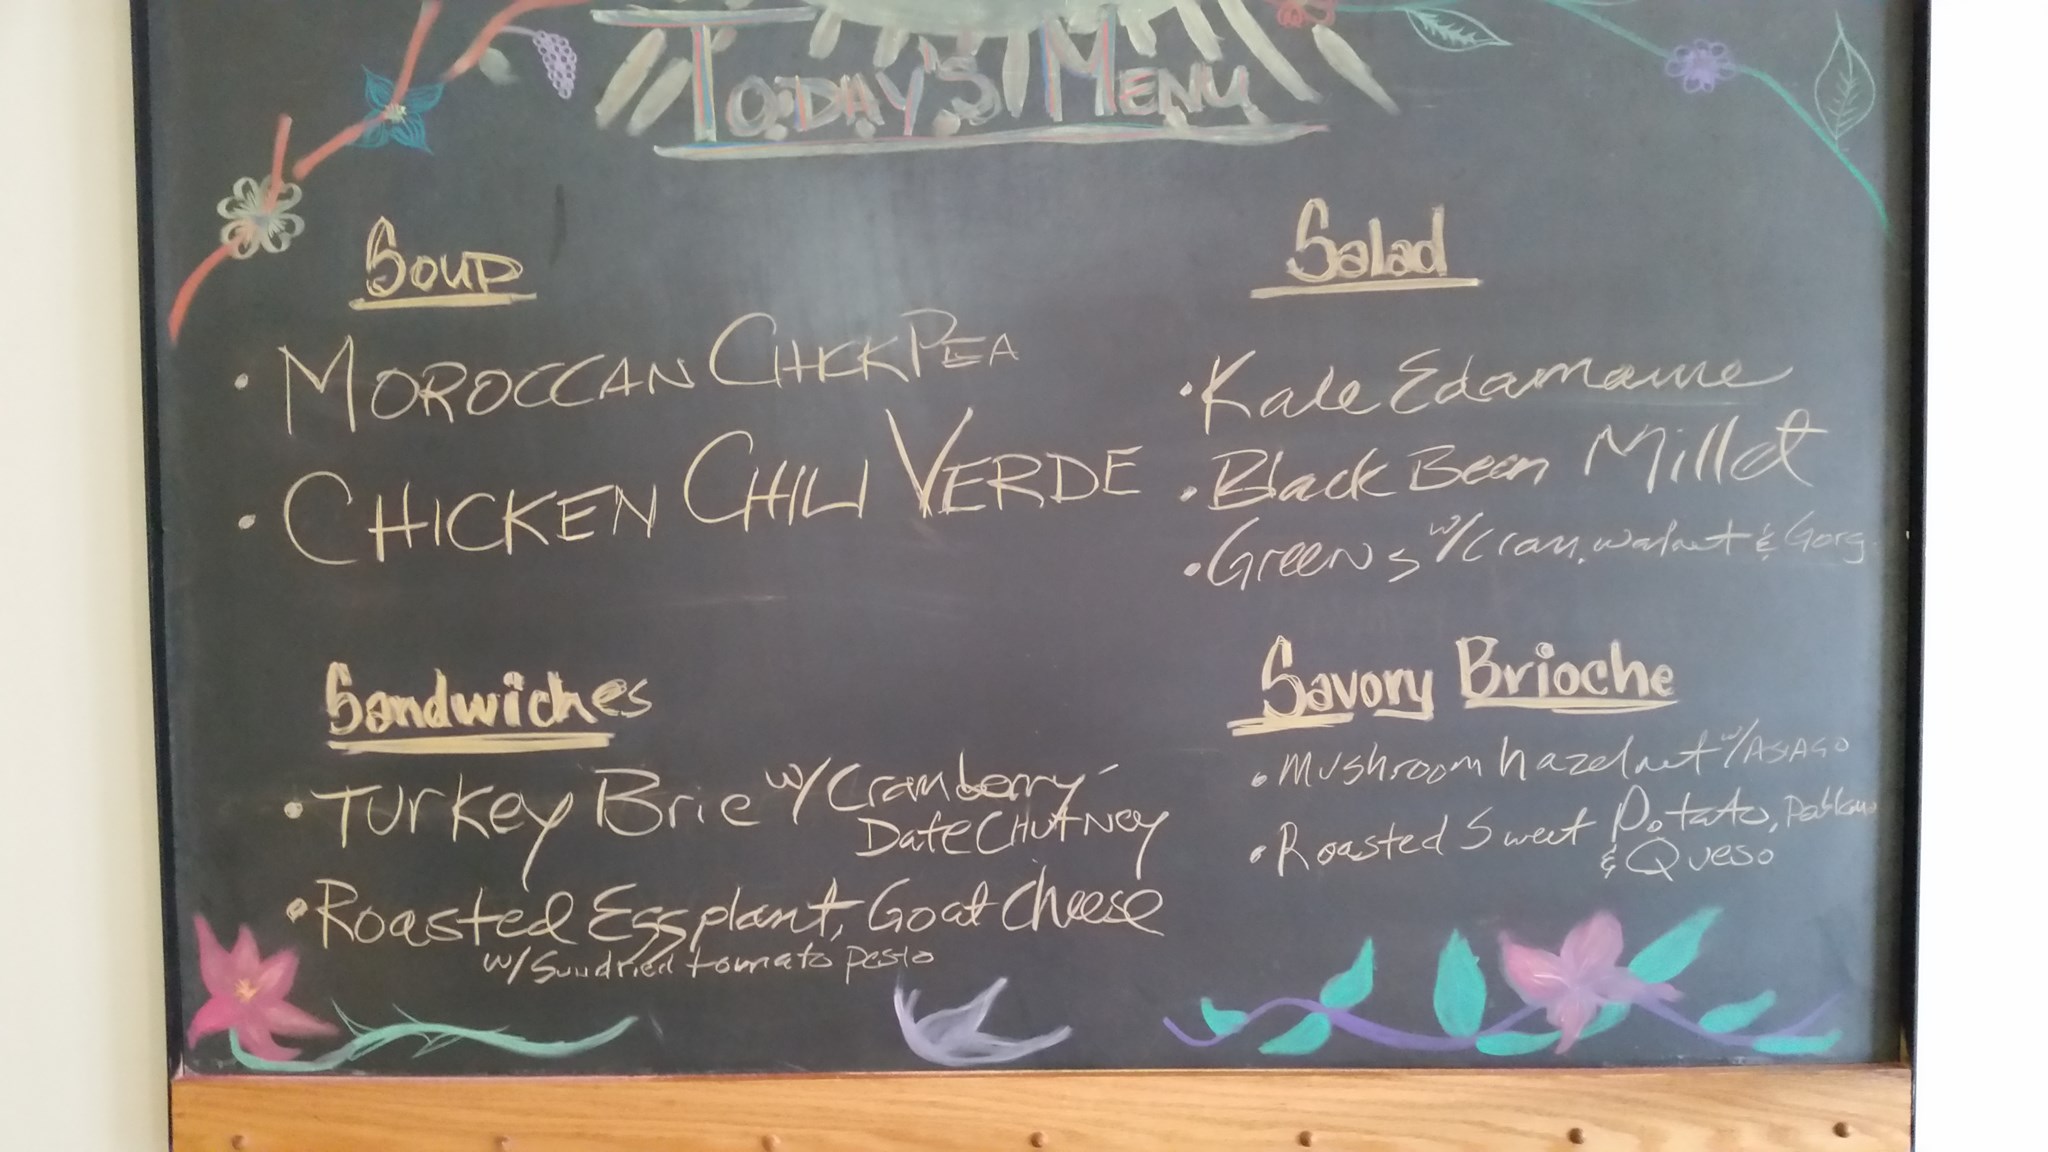 TODAY'S MENU
Soup
• MOROCCAN CHICKPEA
• CHICKEN CHILI VERDE
Salad
• Kale Edamame
• Black Bean Millet
• Greens w/ cran, walnut & Gorg
Sandwiches
• Turkey Brie w/ Cranberry-
Date Chutney
• Roasted Eggplant, Goat Cheese
w/ Sundried tomato pesto
Savory Brioche
• Mushroom hazelnut w/ ASIAGO
• Roasted Sweet Potato,
& Queso